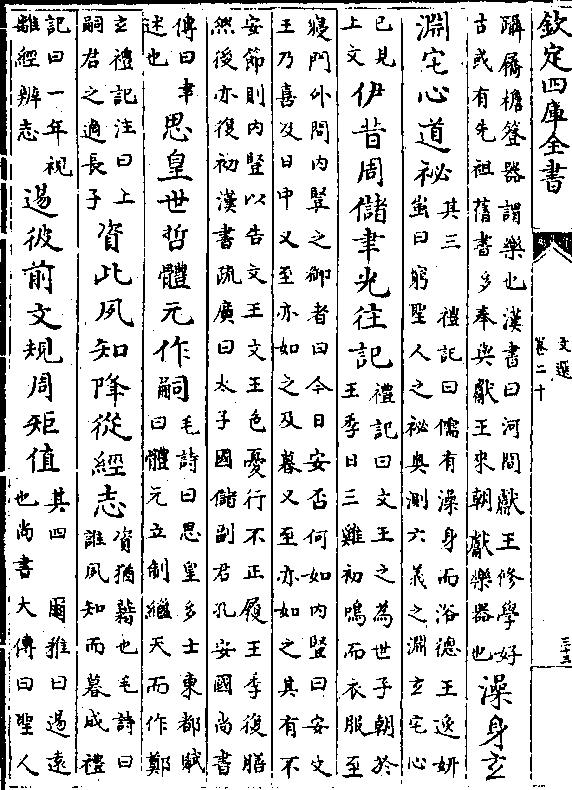 欽定四庫全書
文選
卷二十
三十三
躡屩檐簦器謂樂也漢書曰河間獻王修學好
古或有先祖舊書多奉與獻王來朝獻樂器也
澡身玄
淵宅心道祕
其三 禮記曰儒有澡身而浴德王逸妍
蚩曰窮聖人之祕奥測六義之淵玄宅心
已見
上文
伊昔周儲聿光往記
禮記曰文王之為世子朝於
王季日三雞初鳴而衣服至
寢門外問内豎之御者曰今日安否何如内豎曰安文
王乃喜及日中又至亦如之及暮又至亦如之其有不
安節則内豎以告文王文王色憂行不正履王季復膳
然後亦復初漢書疏廣曰太子國儲副君孔安國尚書
傳曰聿
述也
思皇世哲體元作嗣
毛詩曰思皇多士東都賦
曰體元立制繼天而作鄭
玄禮記注曰上
嗣君之適長子
資此夙知降從經志
資猶藉也毛詩曰
誰夙知而暮成禮
記曰一年視
離經辨志
逷彼前文規周矩值
其四 爾雅曰逷遠
也尚書大傳曰聖人